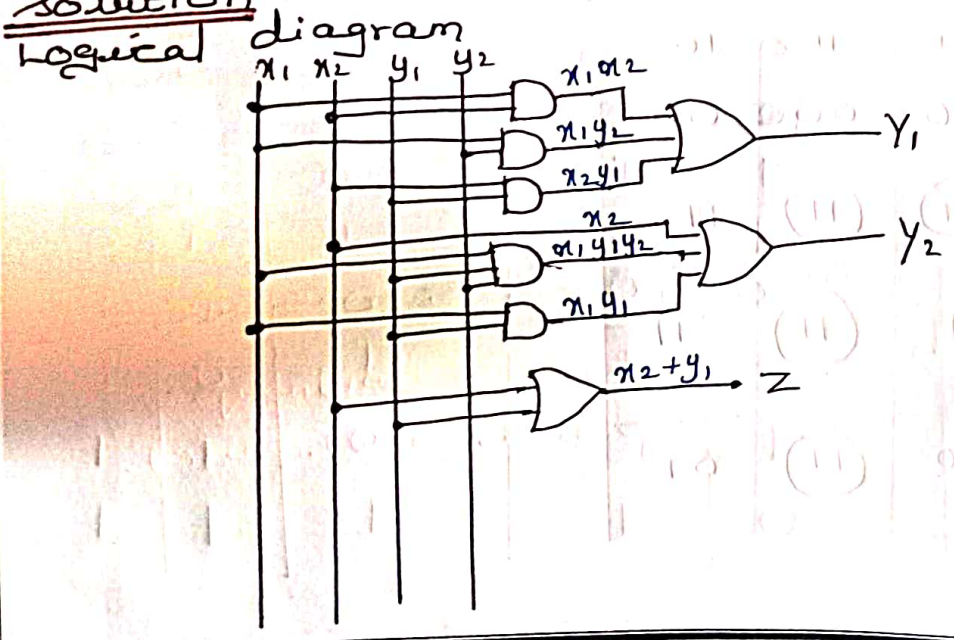 solution
Logical diagram
x1 x2 y1 y2
x1x2
x1y2
Y1
x2y1
x2
x1y1y2
Y2
x1y1
x2+y1
Z